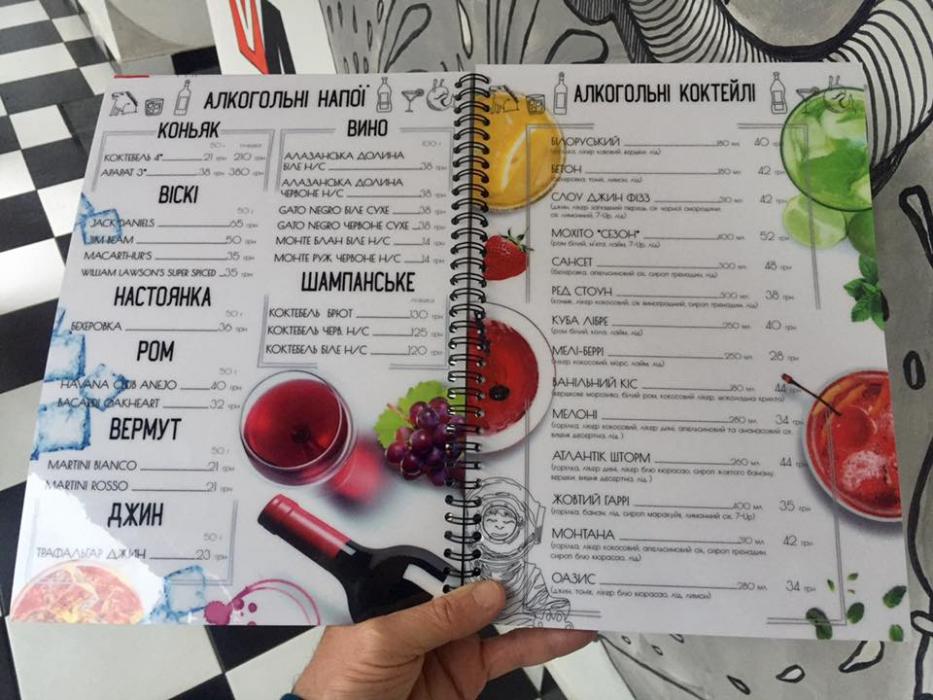 АЛКОГОЛЬНІ НАПОЇ
КОНЬЯК
50 г
КОКТЕБЕЛЬ 4* 21 грн 210 грн
АРАРАТ 3* 38 грн 380 грн
ВІСКІ
50 г
JACK DANIELS 65 грн
JIM BEAM 50 грн
MACARTHUR'S 35 грн
WILLIAM LAWSON'S SUPER SPICED 35 грн
НАСТОЯНКА
50 г
БЕХЕРОВКА 36 грн
РОМ
50 г
HAVANA CLUB ANEJO 40 грн
BACARDI OAKHEART 32 грн
ВЕРМУТ
50 г
MARTINI BIANCO 21 грн
MARTINI ROSSO 21 грн
ДЖИН
50 г
ТРАФАЛЬГАР ДЖИН 23 грн
ВИНО
100 г
АЛАЗАНСЬКА ДОЛИНА
БІЛЕ Н/С 38 грн
АЛАЗАНСЬКА ДОЛИНА
ЧЕРВОНЕ Н/С 38 грн
GATO NEGRO БІЛЕ СУХЕ 38 грн
GATO NEGRO ЧЕРВОНЕ СУХЕ 38 грн
МОНТЕ БЛАН БІЛЕ Н/С 14 грн
МОНТЕ РУЖ ЧЕРВОНЕ Н/С 14 грн
ШАМПАНСЬКЕ
пляшка
КОКТЕБЕЛЬ БРЮТ 130 грн
КОКТЕБЕЛЬ ЧЕРВ. Н/С 125 грн
КОКТЕБЕЛЬ БІЛЕ Н/С 120 грн
АЛКОГОЛЬНІ КОКТЕЙЛІ
БІЛОРУСЬКИЙ 180 мл 40 грн
(горілка, лікер кавовий, вершки, лід)
БЕТОН 180 мл 42 грн
(бехеровка, тонік, лимон, лід)
СЛОУ ДЖИН ФІЗЗ 310 мл 42 грн
(джин, лікер запашний персик, сік чорної смородини,
сік лимонний, 7-Up, лід)
МОХІТО "СЕЗОН" 400 мл 52 грн
(ром білий, м'ята, лайм, 7-Up, лід)
САНСЕТ 300 мл 48 грн
(бехеровка, апельсиновий сік, сироп гренадин, лід)
РЕД СТОУН 500 мл 38 грн
(коньяк, лікер кокосовий, сік виноградний, сироп гренадин, лід)
КУБА ЛІБРЕ 250 мл 40 грн
(ром білий, кола, лайм, лід)
МЕЛІ-БЕРРІ 250 мл 28 грн
(лікер кокосовий, морс, лайм, лід)
ВАНІЛЬНИЙ КІС 180 мл 44 грн
(вершкове морозиво, білий ром, кокосовий лікер, шоколадна крихта)
МЕЛОНІ 280 мл 34 грн
(горілка, лікер дині, апельсиновий та ананасовий сік,
вишня десертна, лід)
АТЛАНТІК ШТОРМ 260 мл 44 грн
(горілка, лікер дині, лікер блю кюрасао, сироп жовтого банану,
вершки, вишня десертна, лід)
ЖОВТИЙ ГАРРІ 400 мл 35 грн
(горілка, банан, лід, сироп маракуйя, лимонний сік, 7-Up)
МОНТАНА 310 мл 42 грн
(горілка, лікер кокосовий, апельсиновий сік, сироп гренадин,
сироп блю кюрасао, лід)
ОАЗИС 280 мл 34 грн
(джин, тонік, лікер блю кюрасао, лід, лимон)